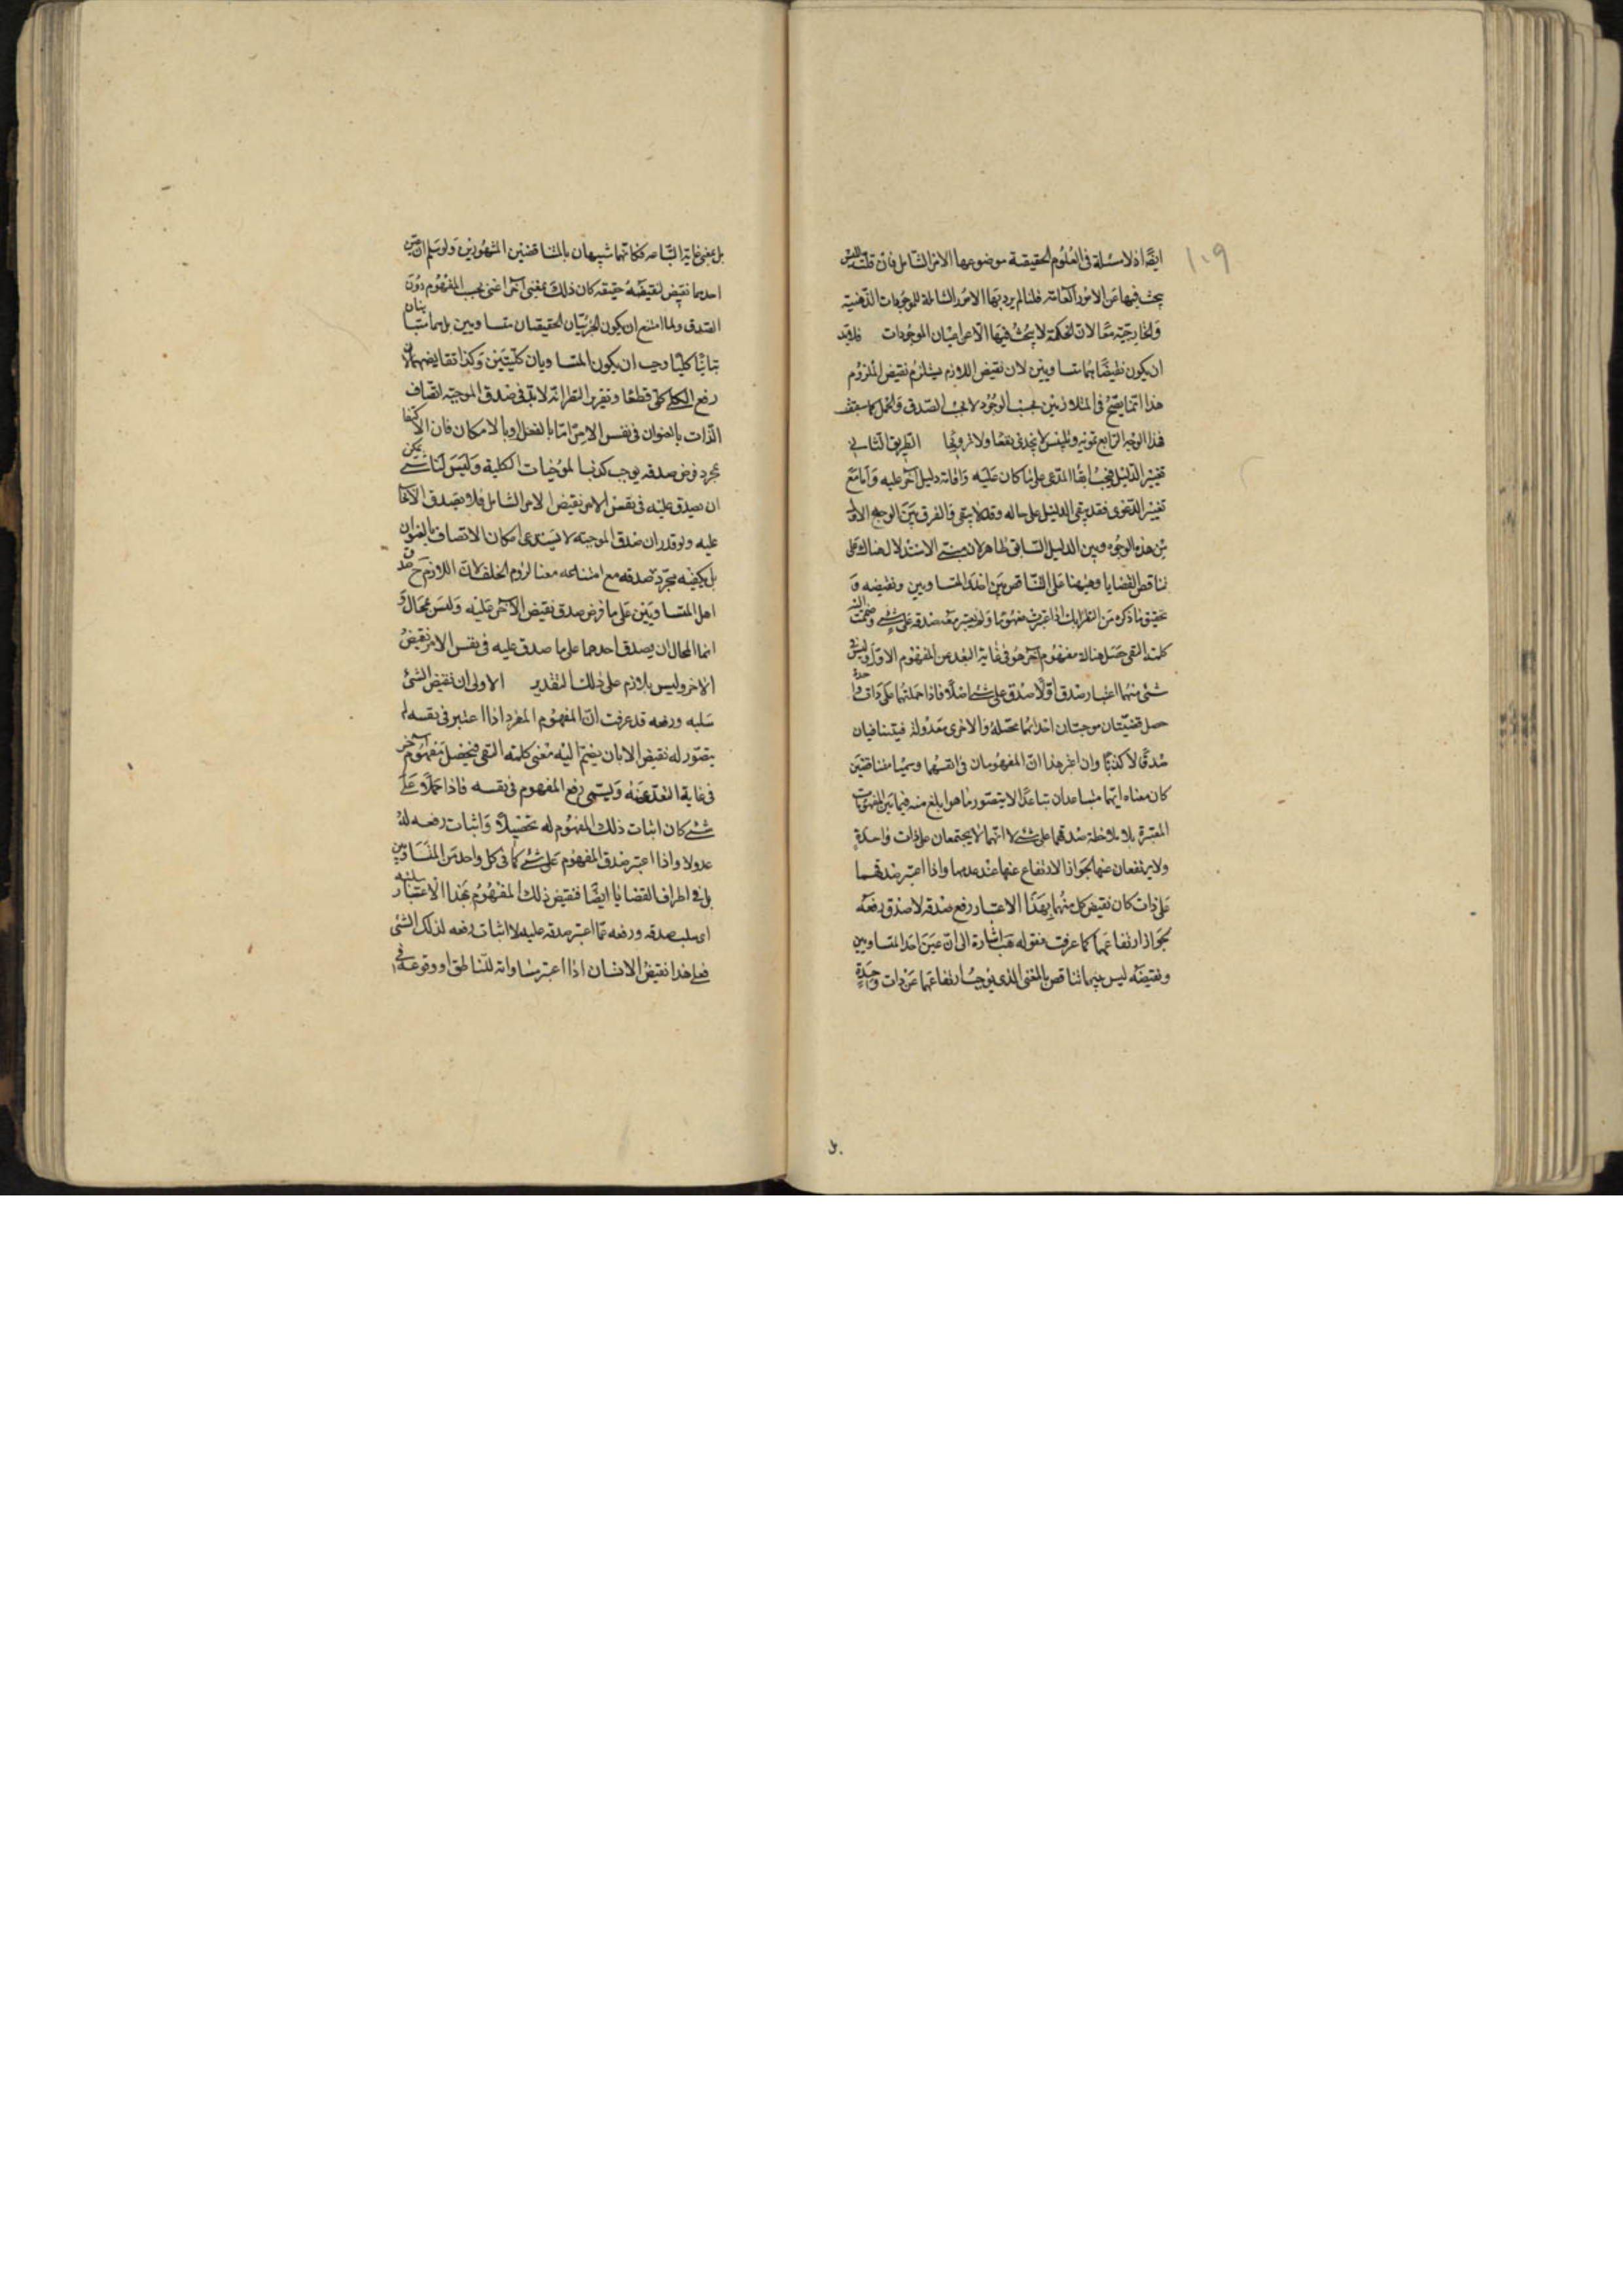 ١٠٩
ايضًا اذ لا مسئلة فى العلوم الحقيقية موضوعها الامر الشامل فان قلت اليس
يبحث فيها عن الامور العامة قلنا لم يرد بها الامور الشاملة للموجودات الذهنية
والخارجية معًا لان الحكمة لا يبحث فيها الا عن اعيان الموجودات فلا بد
ان يكون نقيضاهما متساويين لان نقيض اللازم يستلزم نقيض الملزوم
هذا انما يصح فى المتلازمين بحسب الوجود لا بحسب الصدق والحمل كما سبقت
فهذا الوجه الرابع تمويه وتلبيس لا يجدى نفعًا ولا ترويجًا الطريق الثانى
تغيير الدليل فيجب ابقاء المدعى على ما كان عليه واقامة دليل آخر عليه واما مع
تغيير الدعوى فقد يبقى الدليل على حاله وقد لا يبقى والفرق بين الوجه الاول
من هذه الوجوه وبين الدليل السابق ظاهر لان مبنى الاستدلال هناك على
تناقض القضايا وههنا على التناقض بين احد المتساويين ونقيضه و
تحقيق ما ذكره من النظر انك اذا اعتبرت مفهومًا ولم يعتبر معه صدقه على شئ وضممت اليه
كلمة النفى حصل هناك مفهوم آخر هو فى غاية البعد عن المفهوم الاول وليس فى
شئ منهما اعتبار صدق او لا صدق على شئ اصلًا فاذا حملتهما على ذات واحدة
حصل قضيتان موجبتان احدهما محصلة والاخرى معدولة فيتنافيان
صدقًا لا كذبًا وان اعتبر هذا ان المفهومان فى انفسهما وسميا متناقضين
كان معناه انهما متباعدان تباعدًا لا يتصور ما هو ابلغ منه فيما بين المفهومات
المعتبرة بلا ملاحظة صدقهما على شئ لا انهما لا يجتمعان على ذات واحدة
ولا يرتفعان عنها لجواز الارتفاع عنها عند عدمها واذا اعتبر صدقهما
على ذات كان نقيض كل منهما بهذا الاعتبار رفع صدقه لا صدق رفعه
لجواز ارتفاعهما كما عرفت فقوله هب اشارة الى ان عين احد المتساويين
ونقيضه ليس بينهما تناقض بالمعنى الذى يوجب ارتفاعهما عن ذات واحدة
بل
بل بمعنى غاية التباعد فكانهما شبيهان بالمتناقضين المشهورين ولو سلم ان عين
احدهما نقيض لنقيضه حقيقة كان ذلك بمعنى آخر اعنى بحسب المفهوم دون
الصدق ولما امتنع ان يكون الجزئيان الحقيقيان متساويين بل هما متباينان
تباينًا كليًا وجب ان يكون المتساويان كليتين وكذا نقايضهما لان
رفع الكلى كلى قطعًا وتقرير النظر انه لا بد فى صدق الموجبة اتصاف
الذات بالعنوان فى نفس الامر اما بالفعل او بالامكان فان الاكتفا
بمجرد فرض صدقه يوجب كذب الموجبات الكلية وليس لنا شئ يمكن
ان يصدق عليه فى نفس الامر نقيض الامر الشامل فلا يصدق الايجاب
عليه ولو قدر ان صدق الموجبة لا يستدعى امكان الاتصاف بالعنوان
بل يكفيه مجرد صدقه مع امتناعه معنا لزوم الخلف لان اللازم ح صدق
احد المتساويين على ما فرض صدق نقيض الآخر عليه وليس بمحال و
انما المحال ان يصدق احدهما على ما صدق عليه فى نفس الامر نقيض
الآخر وليس بلازم على ذلك التقدير الاولى ان نقيض الشئ
سلبه ورفعه قد عرفت ان المفهوم المفرد اذا اعتبر فى نفسه لم
يتصور له نقيض الا بان ينضم اليه معنى كلمة النفى فيحصل مفهوم آخر
فى غاية البعد عنه ويسمى رفع المفهوم فى نفسه فاذا حملا على
شئ كان اثبات ذلك المفهوم له تحصيلًا واثبات رفعه له
عدولا واذا اعتبر صدق المفهوم على شئ كما فى كل واحد من المتساويين
بل فى اطراف القضايا ايضًا فنقيض ذلك المفهوم بهذا الاعتبار سلبه
اى سلب صدقه ورفعه عما اعتبر صدقه عليه لا اثبات رفعه لذلك الشئ
فعلى هذا نقيض الانسان اذا اعتبر مساواته للناطق او وقوعه فى